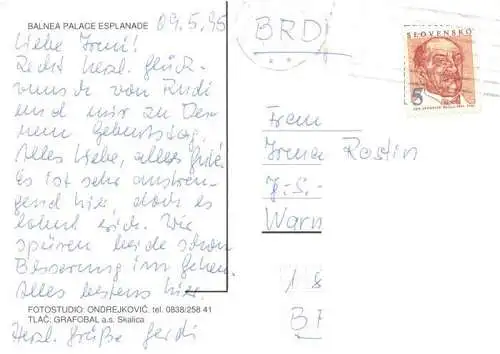 BALNEA PALACE ESPLANADE
09.5.95
Liebe Irmi!
Recht herzl. Glück-
wunsch von Rudi
und mir zu Dei-
nem Geburtstag,
alles Liebe, alles Gute.
Es ist sehr anstren-
gend hier, doch es
lohnt sich. Wir
spüren beide schon
Besserung im Gehen.
Alles bestens hier.
FOTOSTUDIO: ONDREJKOVIČ. tel. 0838/258 41
TLAČ: GRAFOBAL a.s. Skalica
Herzl. Grüße Gerdi
BRD
SLOVENSKO
5
Frau
Irma Rostin
J.-S.-
Warn
18